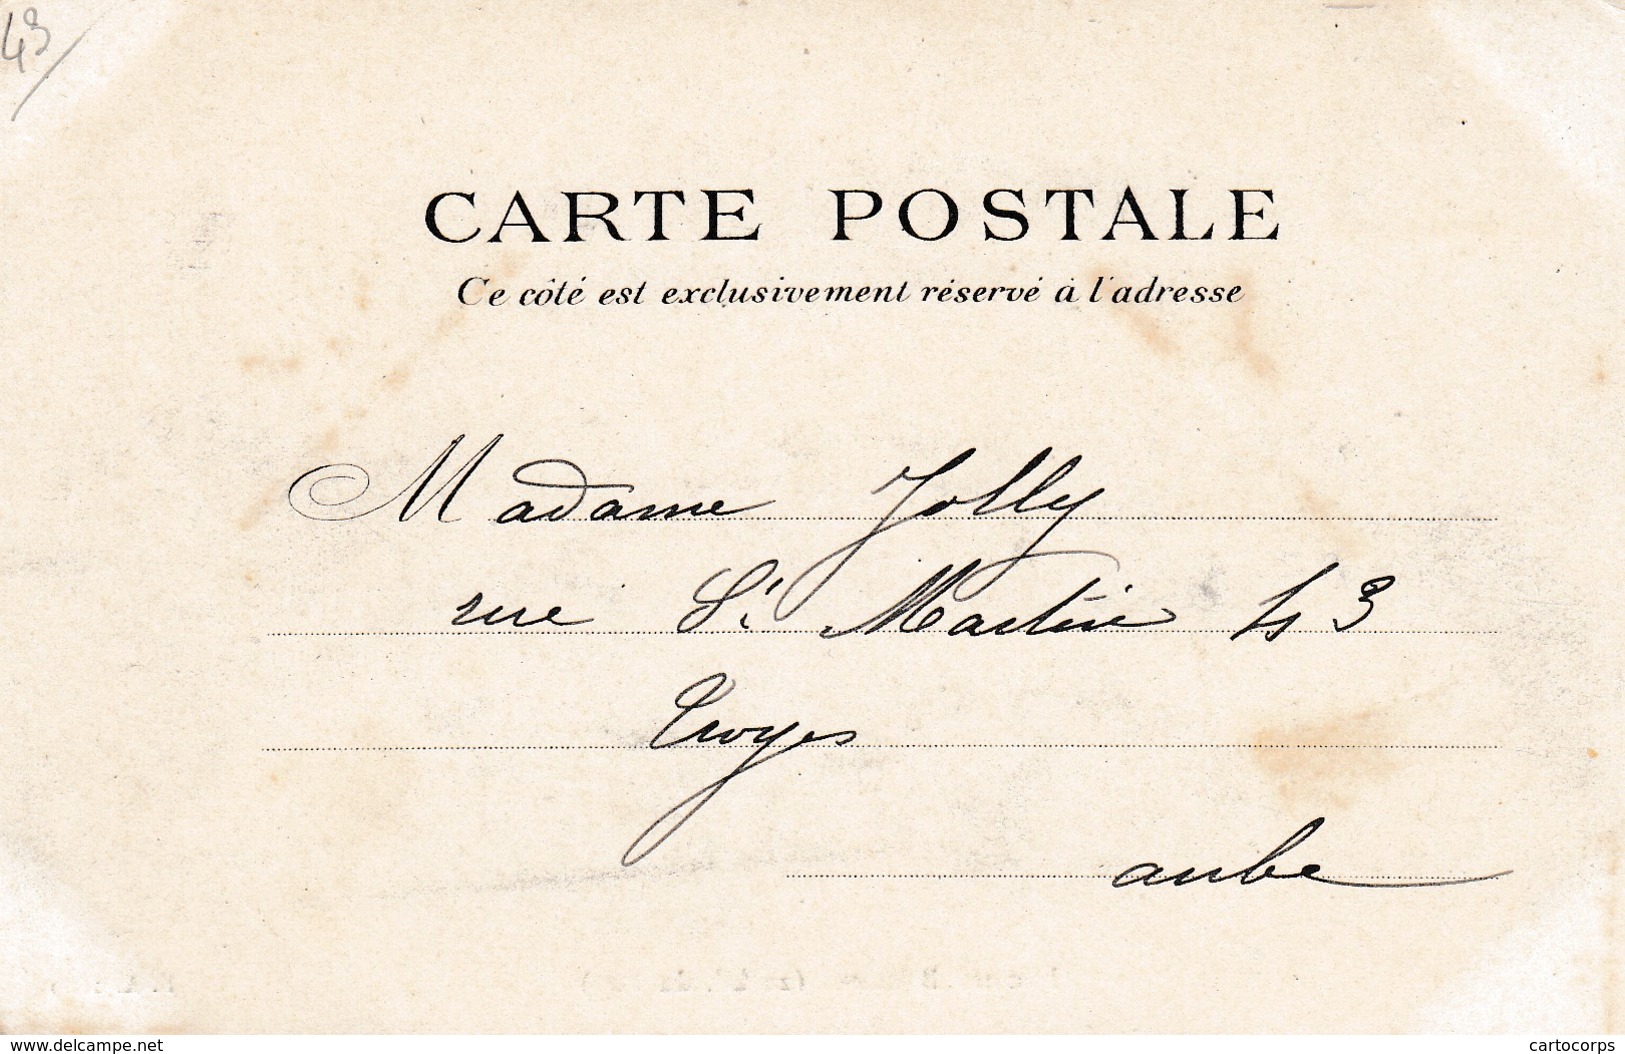 43/
CARTE POSTALE
Ce côté est exclusivement réservé à l'adresse
Madame Jolly
rue St. Martin 43
Troyes
aube
www.delcampe.net
cartocorps